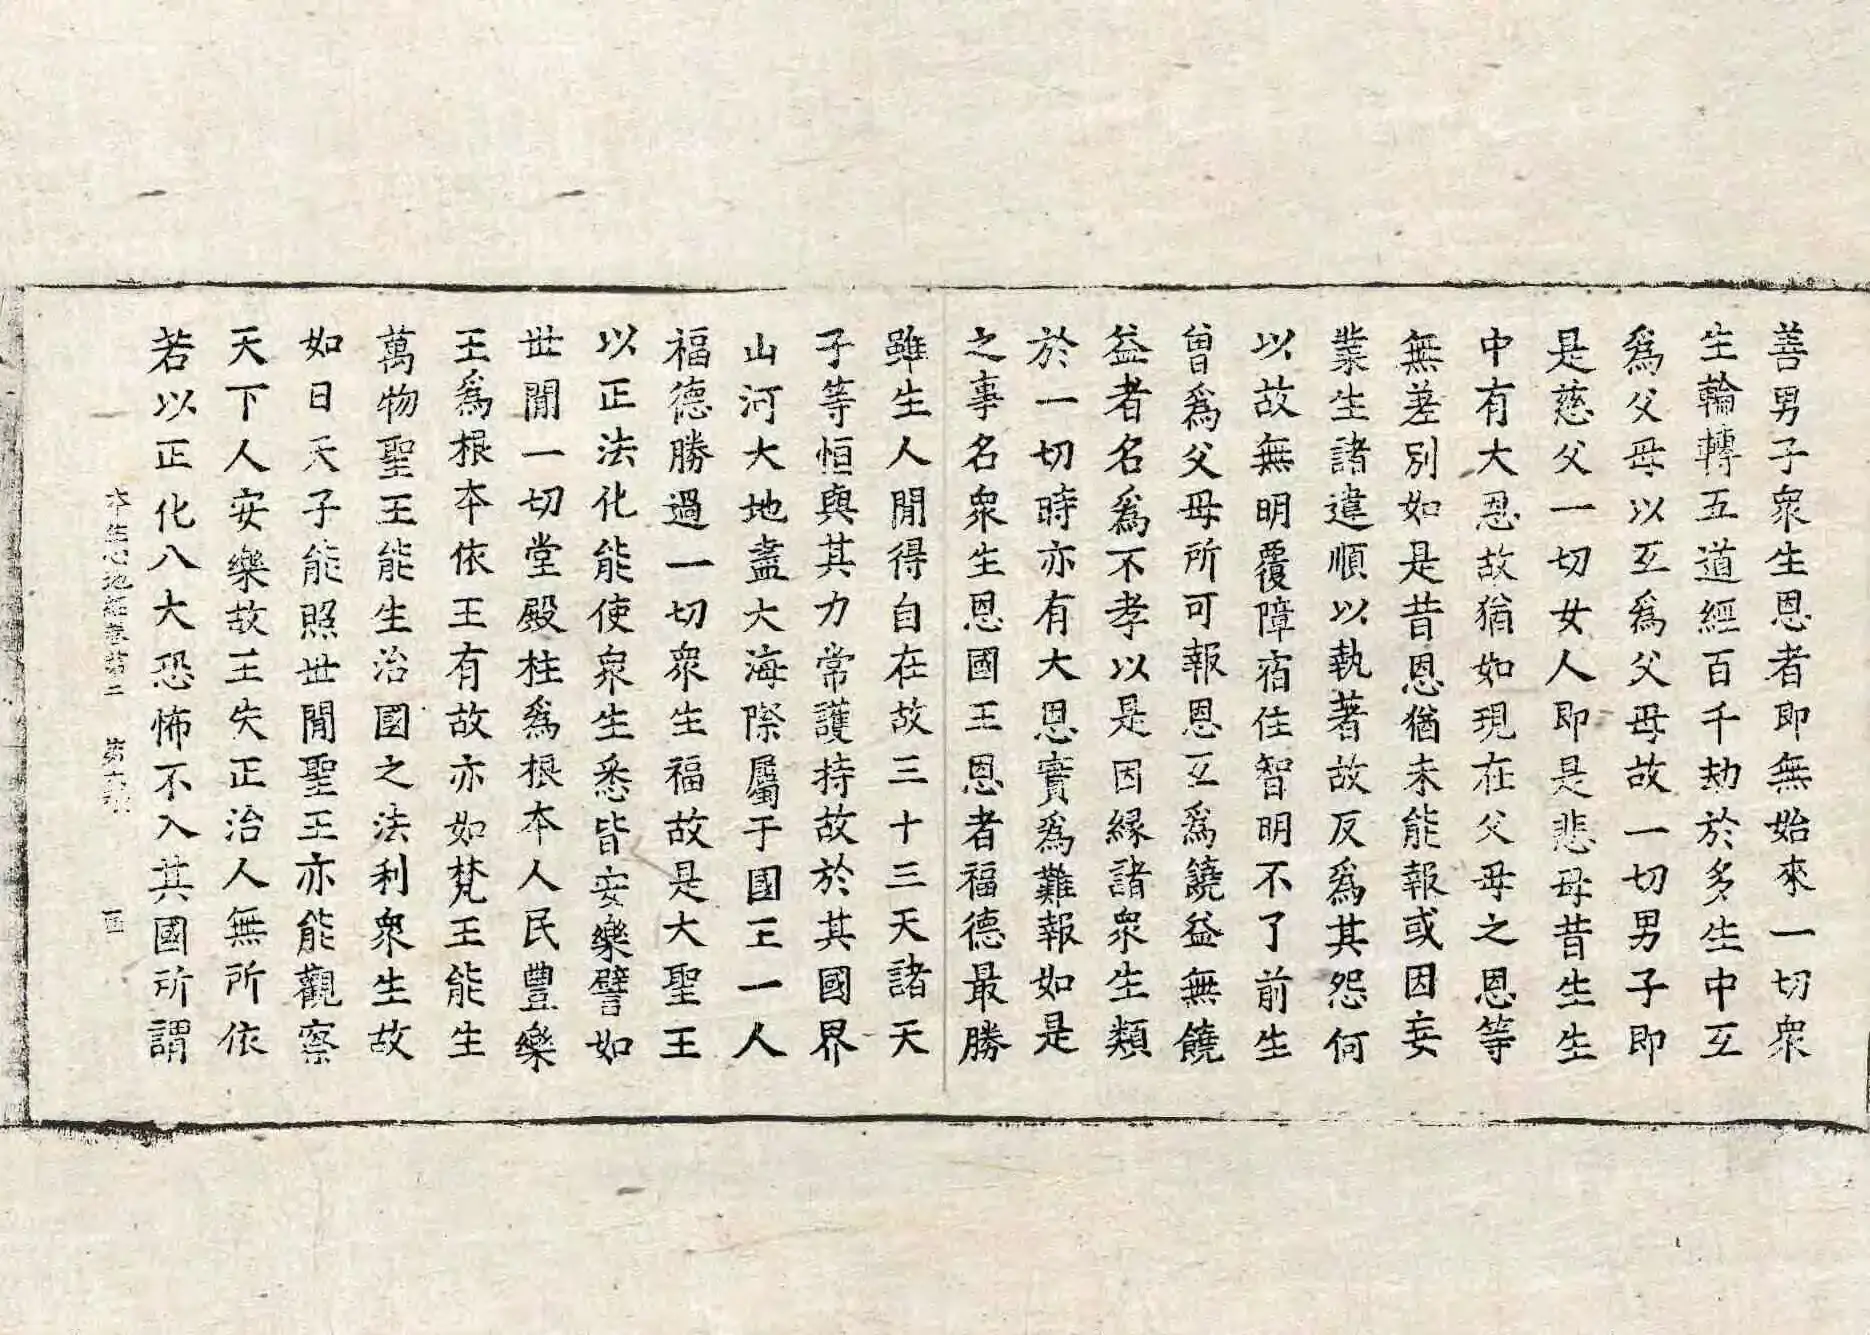 善男子衆生恩者即無始來一切衆
生輪轉五道經百千劫於多生中互
爲父母以互爲父母故一切男子即
是慈父一切女人即是悲母昔生生
中有大恩故猶如現在父母之恩等
無差別如是昔恩猶未能報或因妄
業生諸違順以執著故反爲其怨何
以故無明覆障宿住智明不了前生
曾爲父母所可報恩互爲饒益無饒
益者名爲不孝以是因緣諸衆生類
於一切時亦有大恩實爲難報如是
之事名衆生恩國王恩者福德最勝
雖生人閒得自在故三十三天諸天
子等恒與其力常護持故於其國界
山河大地盡大海際屬于國王一人
福德勝過一切衆生福故是大聖王
以正法化能使衆生悉皆安樂譬如
世閒一切堂殿柱爲根本人民豐樂
王爲根本依王有故亦如梵王能生
萬物聖王能生治國之法利衆生故
如日天子能照世閒聖王亦能觀察
天下人安樂故王失正治人無所依
若以正化八大恐怖不入其國所謂
本生心地經卷第二 第六張